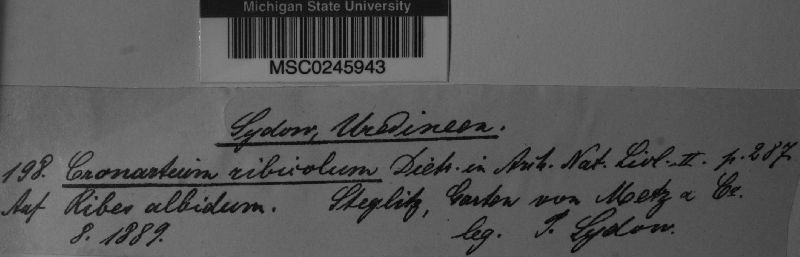 Michigan State University
MSC0245943
Sydow, Uredineen.
198. Cronartium ribicolum Dietr. in Arch. Nat. Livl. II. p. 287
Auf Ribes albidum. Steglitz, Garten von Metz & Co.
8. 1889. leg. P. Sydow.